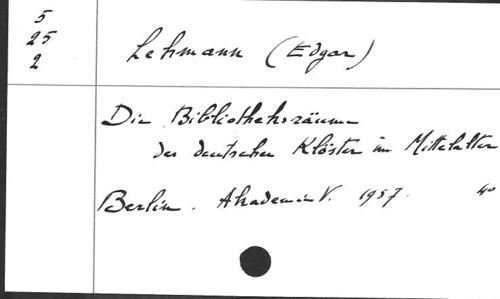 5
25
2
Lehmann (Edgar)
Die Bibliotheksräume
der deutschen Klöster im Mittelalter
Berlin. Akademie V. 1957. 4°